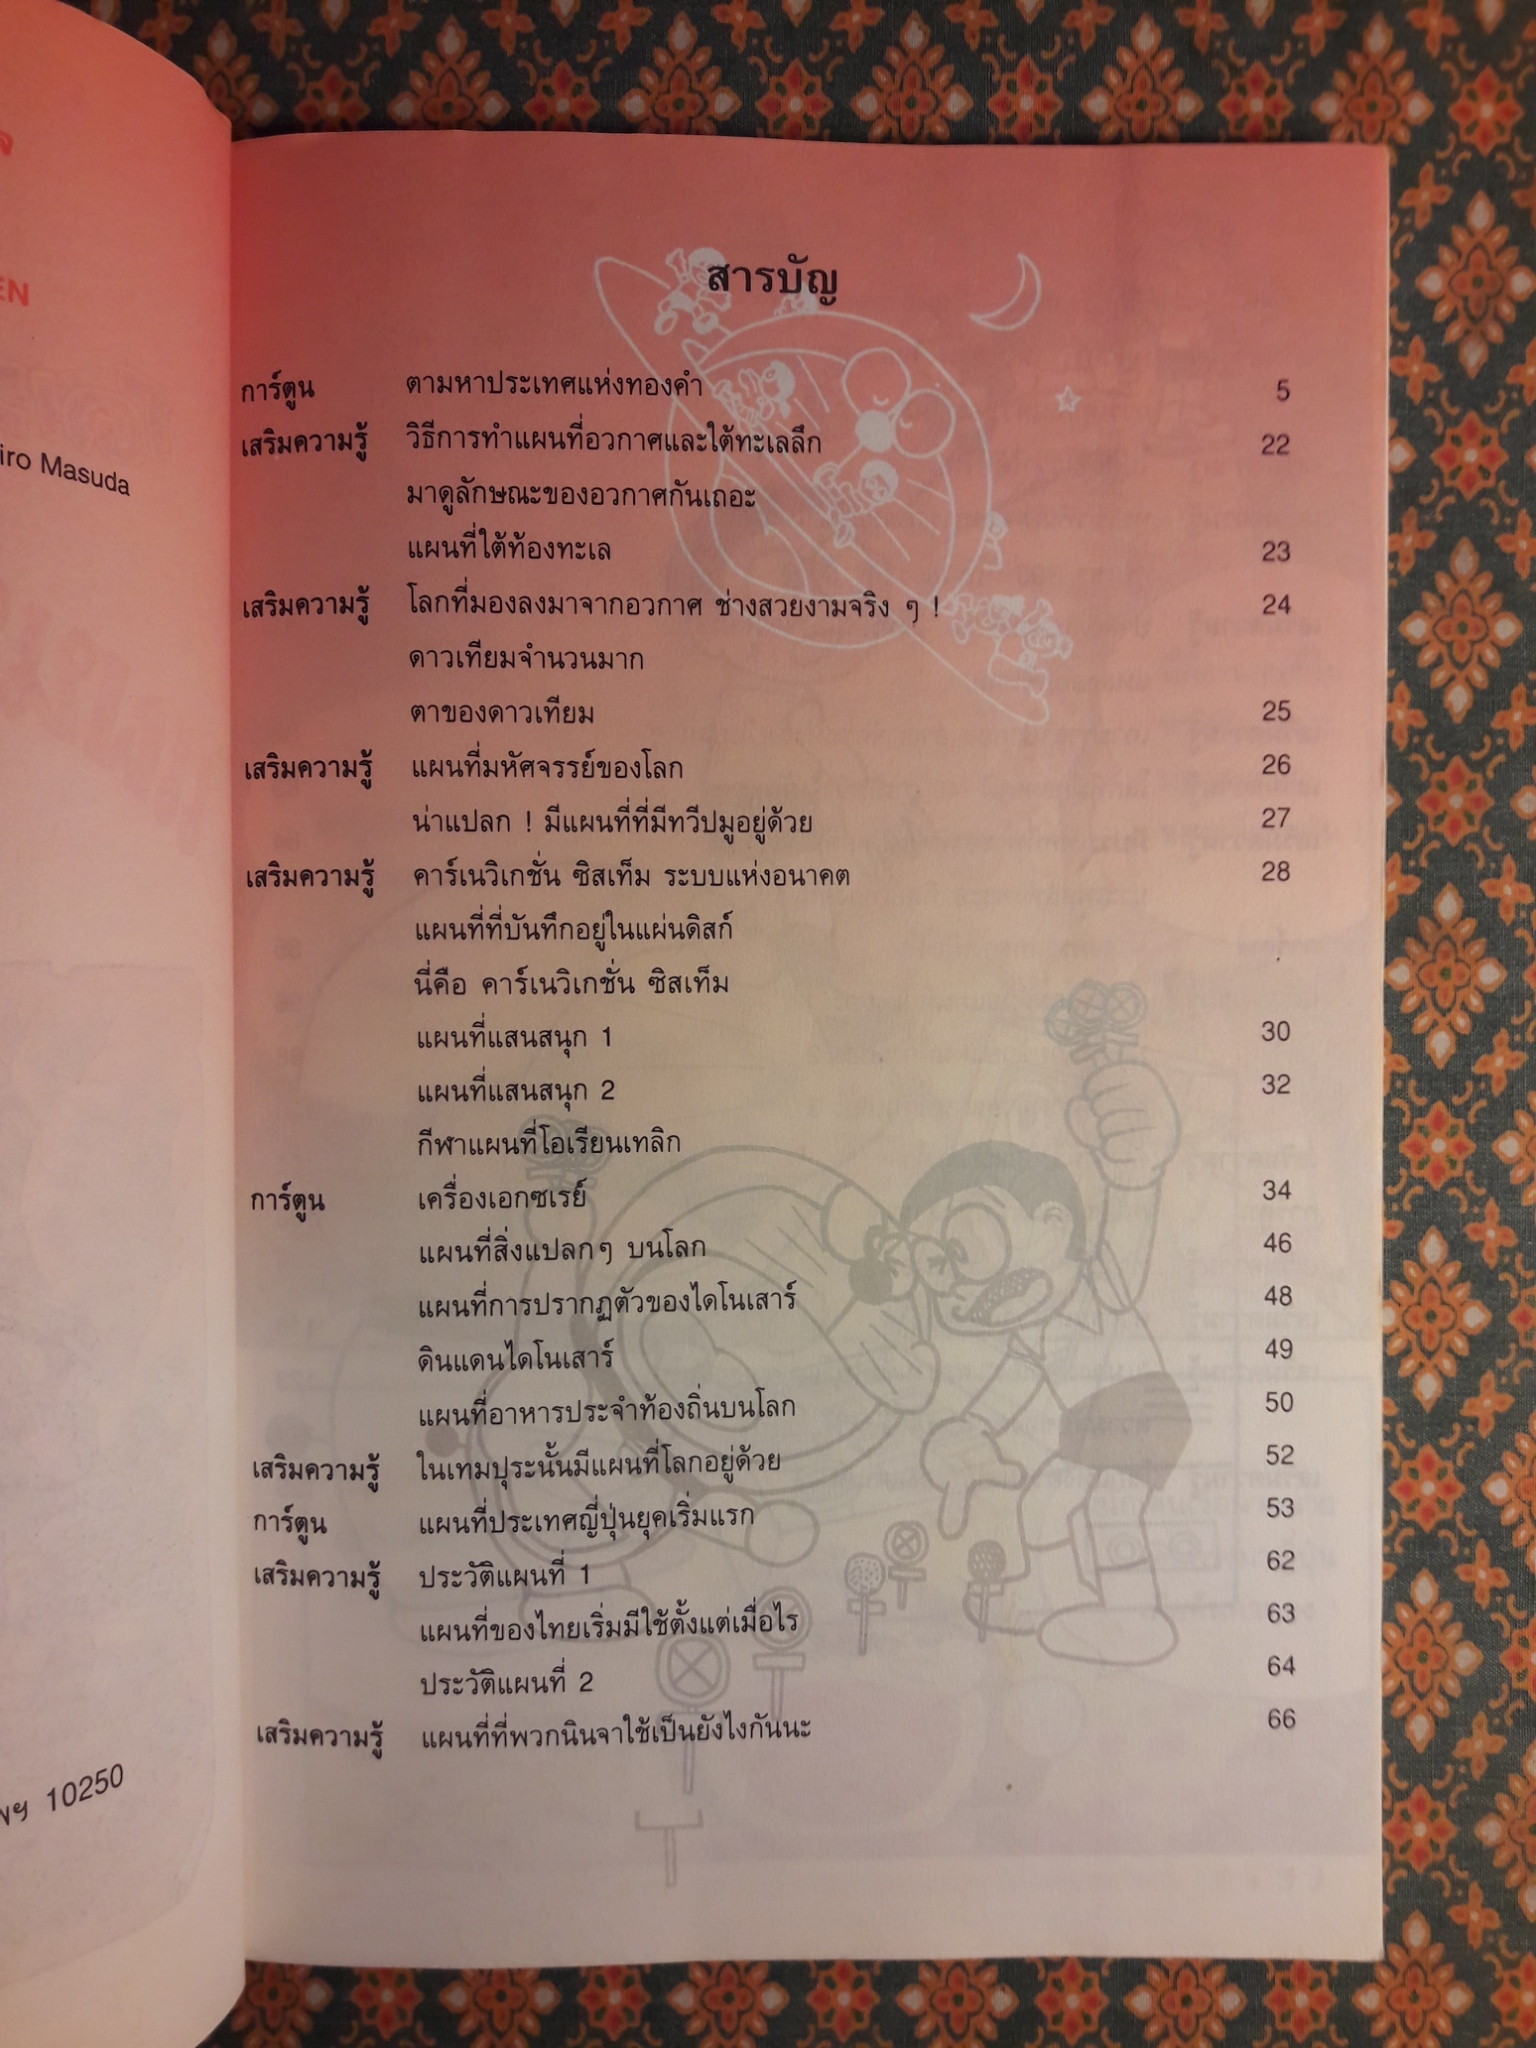 EN
iro Masuda
10250
สารบัญ
การ์ตูน ตามหาประเทศแห่งทองคำ 5
เสริมความรู้ วิธีการทำแผนที่อวกาศและใต้ทะเลลึก 22
มาดูลักษณะของอวกาศกันเถอะ
แผนที่ใต้ท้องทะเล 23
เสริมความรู้ โลกที่มองลงมาจากอวกาศ ช่างสวยงามจริง ๆ ! 24
ดาวเทียมจำนวนมาก
ตาของดาวเทียม 25
เสริมความรู้ แผนที่มหัศจรรย์ของโลก 26
น่าแปลก ! มีแผนที่ที่มีทวีปมูอยู่ด้วย 27
เสริมความรู้ คาร์เนวิเกชั่น ซิสเท็ม ระบบแห่งอนาคต 28
แผนที่ที่บันทึกอยู่ในแผ่นดิสก์
นี่คือ คาร์เนวิเกชั่น ซิสเท็ม
แผนที่แสนสนุก 1 30
แผนที่แสนสนุก 2 32
กีฬาแผนที่โอเรียนเทลิก
การ์ตูน เครื่องเอกซเรย์ 34
แผนที่สิ่งแปลกๆ บนโลก 46
แผนที่การปรากฏตัวของไดโนเสาร์ 48
ดินแดนไดโนเสาร์ 49
แผนที่อาหารประจำท้องถิ่นบนโลก 50
เสริมความรู้ ในเทมปุระนั้นมีแผนที่โลกอยู่ด้วย 52
การ์ตูน แผนที่ประเทศญี่ปุ่นยุคเริ่มแรก 53
เสริมความรู้ ประวัติแผนที่ 1 62
แผนที่ของไทยเริ่มมีใช้ตั้งแต่เมื่อไร 63
ประวัติแผนที่ 2 64
เสริมความรู้ แผนที่ที่พวกนินจาใช้เป็นยังไงกันนะ 66